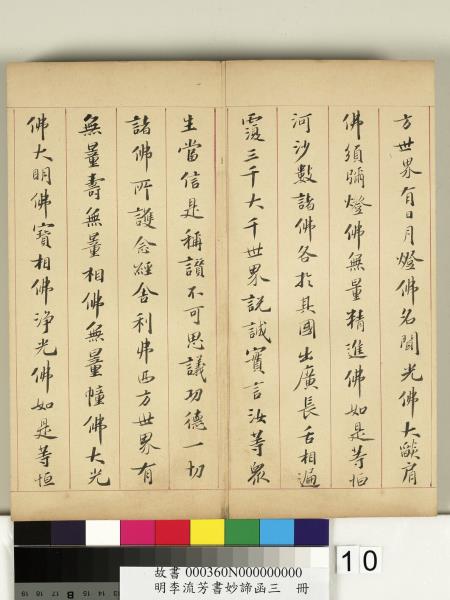 方世界有日月燈佛名聞光佛大燄肩
佛須彌燈佛無量精進佛如是等恒
河沙數諸佛各於其國出廣長舌相遍
覆三千大千世界說誠實言汝等眾
生當信是稱讚不可思議功德一切
諸佛所護念經舍利弗西方世界有
無量壽無量相佛無量幢佛大光
佛大明佛寶相佛淨光佛如是等恒
10
故書 000360N000000000
明李流芳書妙諦函三 冊
B